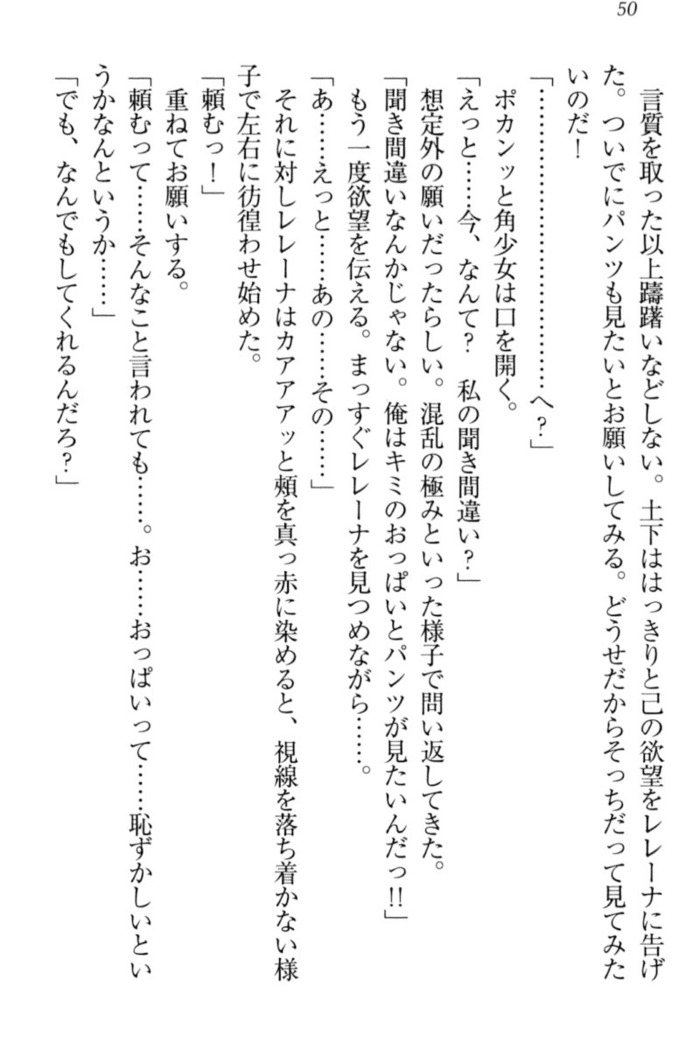 50
言質を取った以上躊躇いなどしない。土下ははっきりと己の欲望をレレーナに告げ
た。ついでにパンツも見たいとお願いしてみる。どうせだからそっちだって見てみた
いのだ！
「……………………………へ？」
ポカンッと角少女は口を開く。
「えっと……今、なんて？　私の聞き間違い？」
想定外の願いだったらしい。混乱の極みといった様子で問い返してきた。
「聞き間違いなんかじゃない。俺はキミのおっぱいとパンツが見たいんだっ!!」
もう一度欲望を伝える。まっすぐレレーナを見つめながら……。
「あ……えっと……あの……その……」
それに対しレレーナはカアアアッと頰を真っ赤に染めると、視線を落ち着かない様
子で左右に彷徨わせ始めた。
「頼むっ！」
重ねてお願いする。
「頼むって……そんなこと言われても……。お……おっぱいって……恥ずかしいとい
うかなんというか……」
「でも、なんでもしてくれるんだろ？」